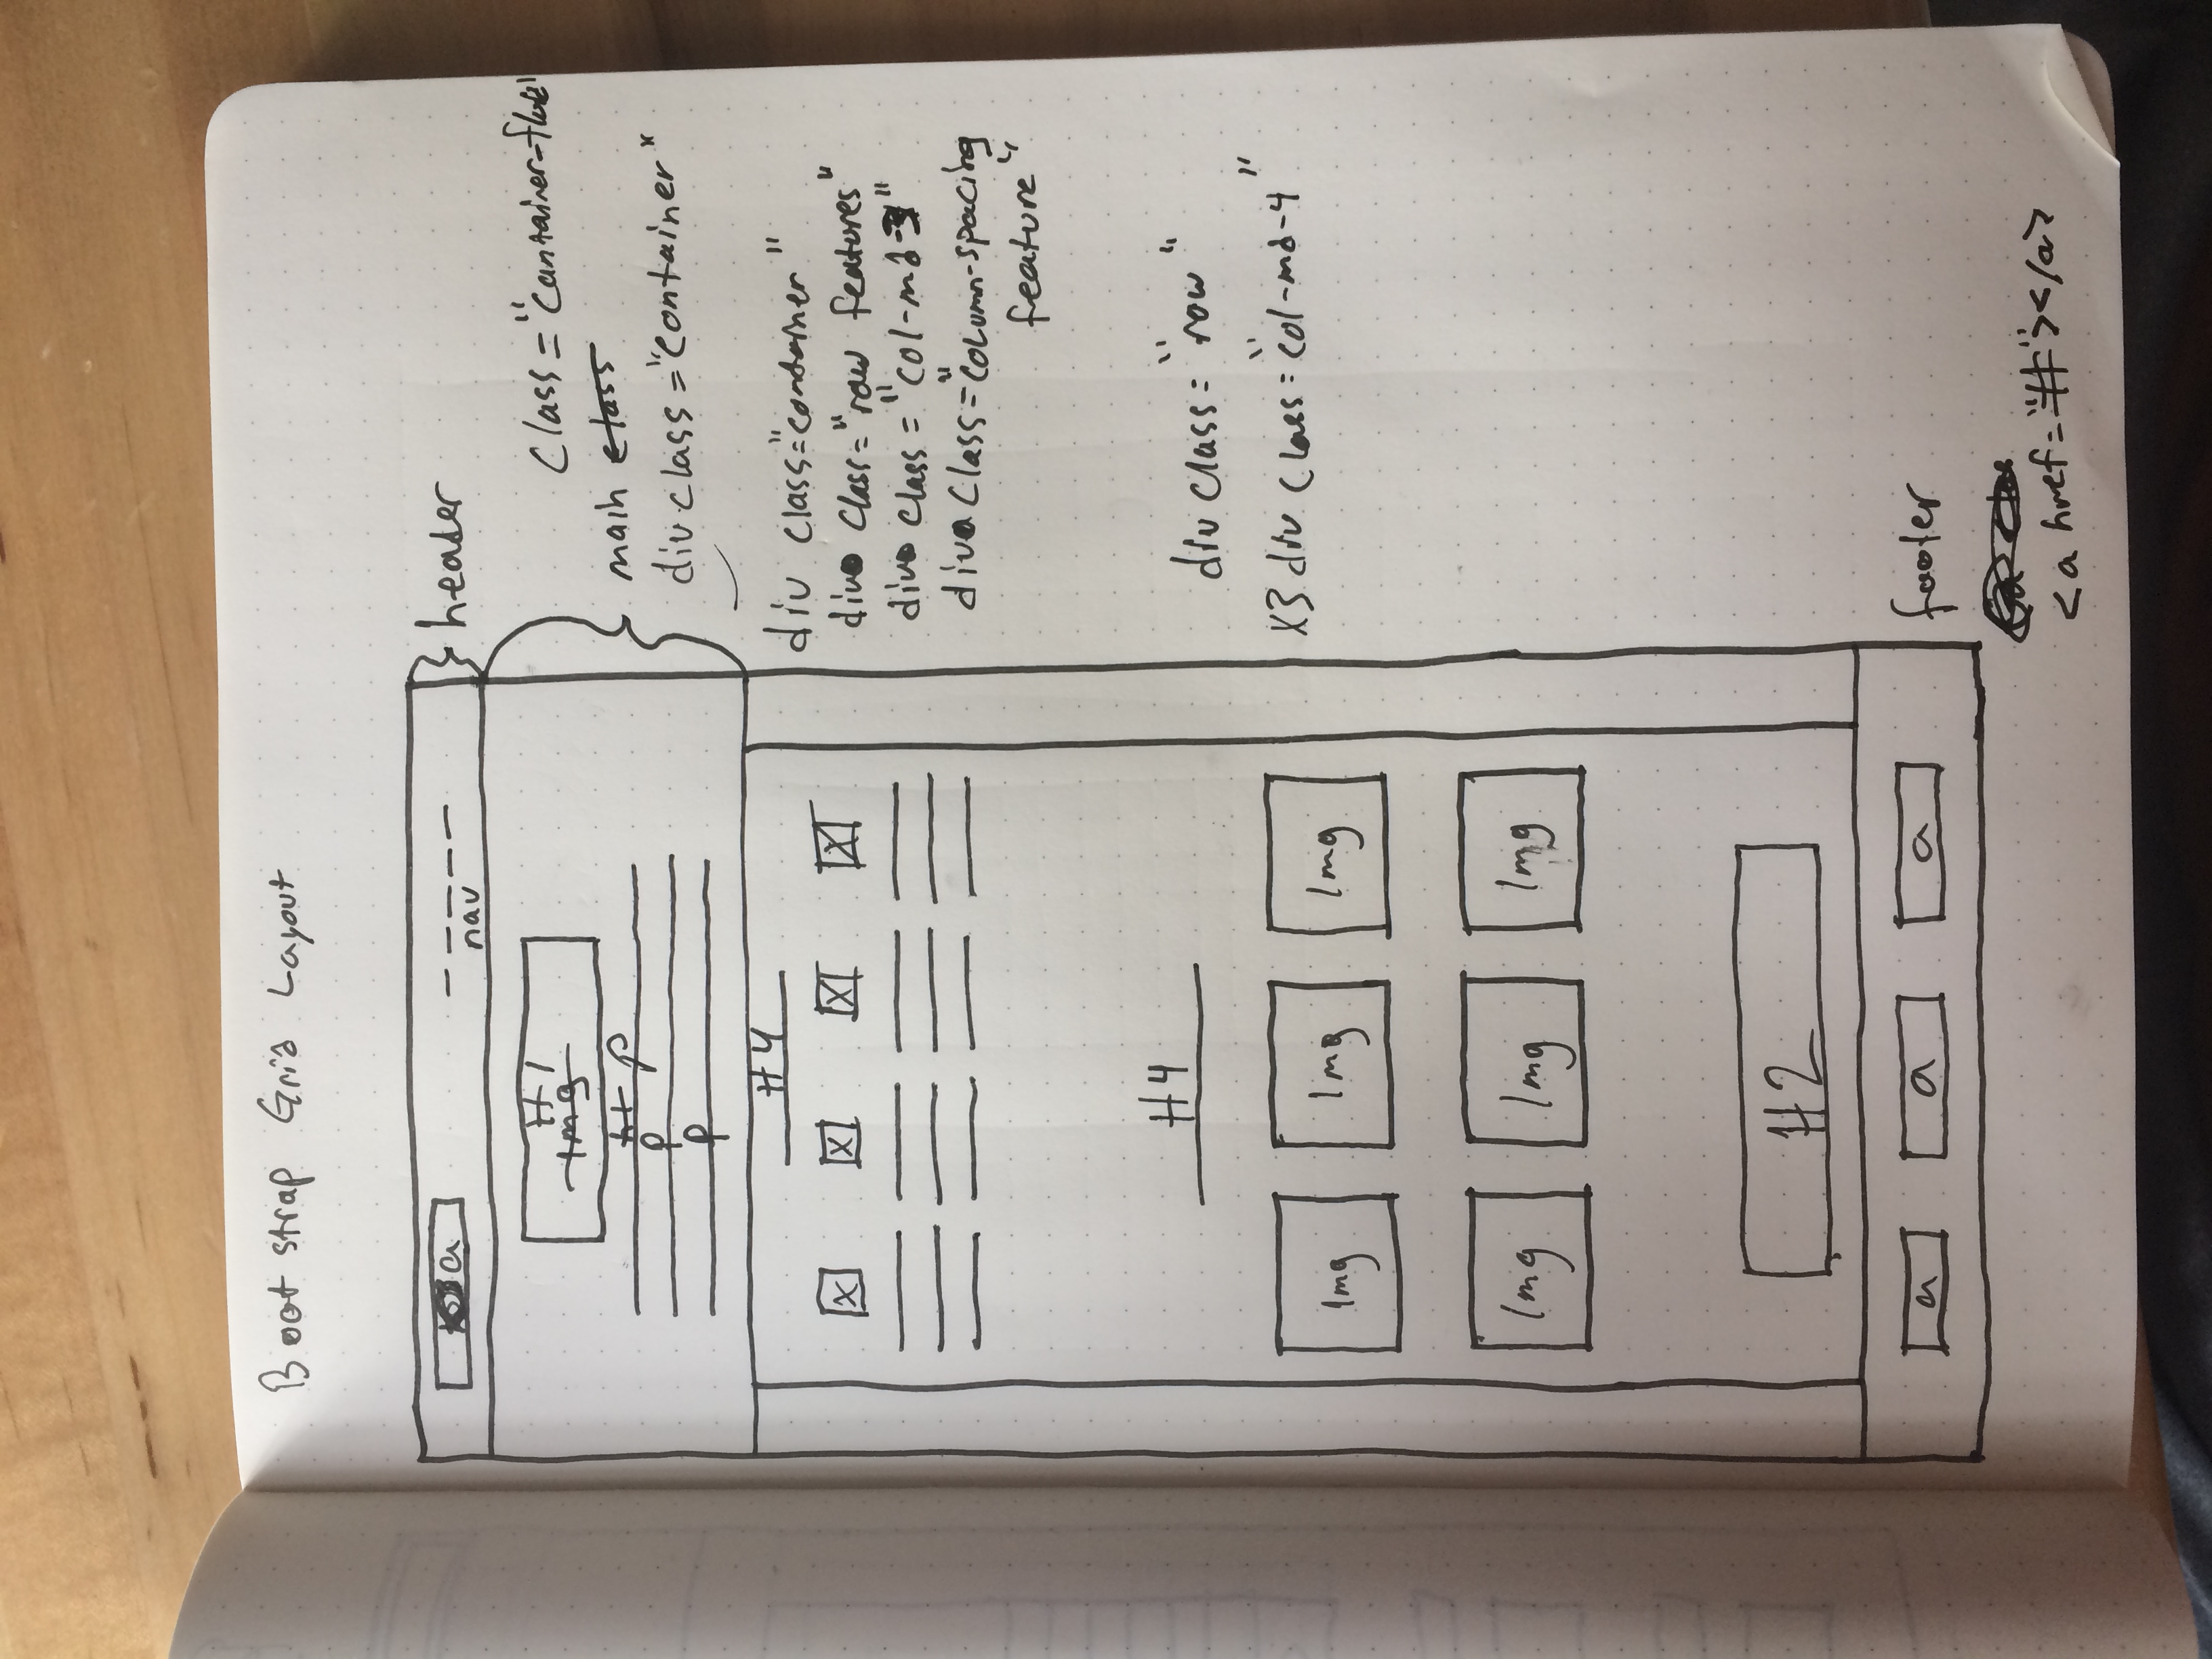 Bootstrap Grid Layout
a
nav
header
H1
Img
class="container-fluid"
H1 p
main class
p
div class="container"
p
H4
div class="container"
X X X X
div class="row features"
div class="col-md-3"
div class="column-spacing
feature"
H4
div class="row"
X3 div class="col-md-4"
Img Img Img
Img Img Img
H2
a a a
footer
<a href="#"></a>